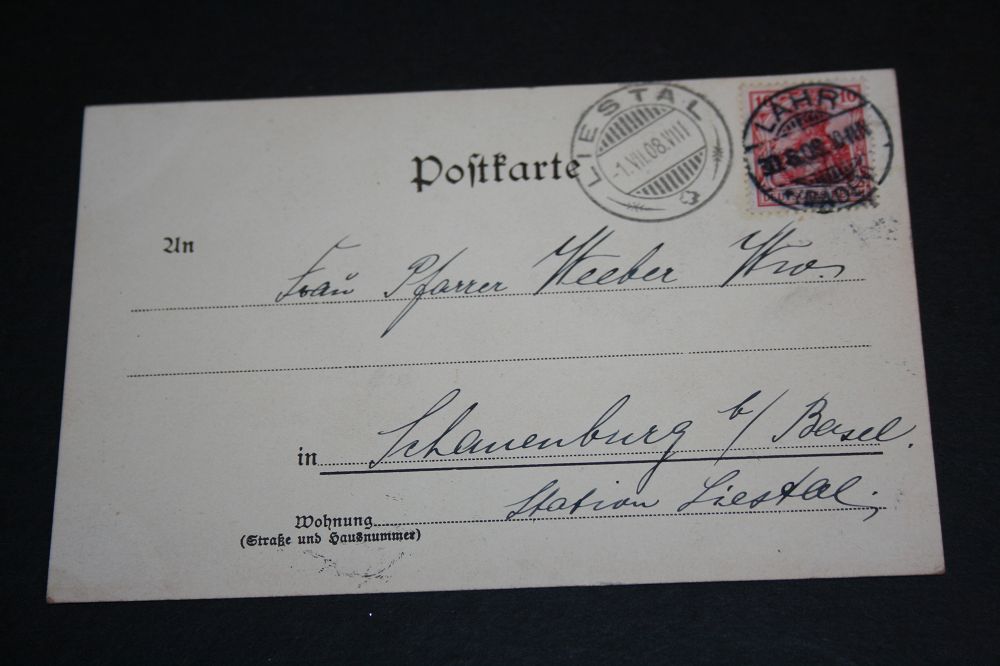 Postkarte
LIESTAL
-1.VII.08.VIII
10 10
LAHR
30.6.08.
(BADEN)
An
Frau Pfarrer Weeber Wwe.
in Schauenburg b/ Basel.
Station Liestal,
Wohnung
(Straße und Hausnummer)